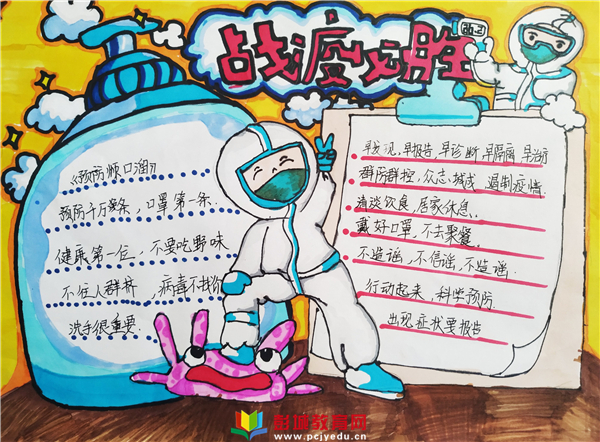 战疫必胜
《预防顺口溜》
预防千万条，口罩第一条.
健康第一位，不要吃野味
不往人群挤，病毒不找你
洗手很重要.
早发现，早报告，早诊断，早隔离，早治疗
群防群控，众志成城，遏制疫情.
清淡饮食，居家休息.
戴好口罩，不去聚餐.
不造谣，不信谣，不造谣.
行动起来，科学预防
出现症状要报告
彭城教育网
www.pcjyedu.cn